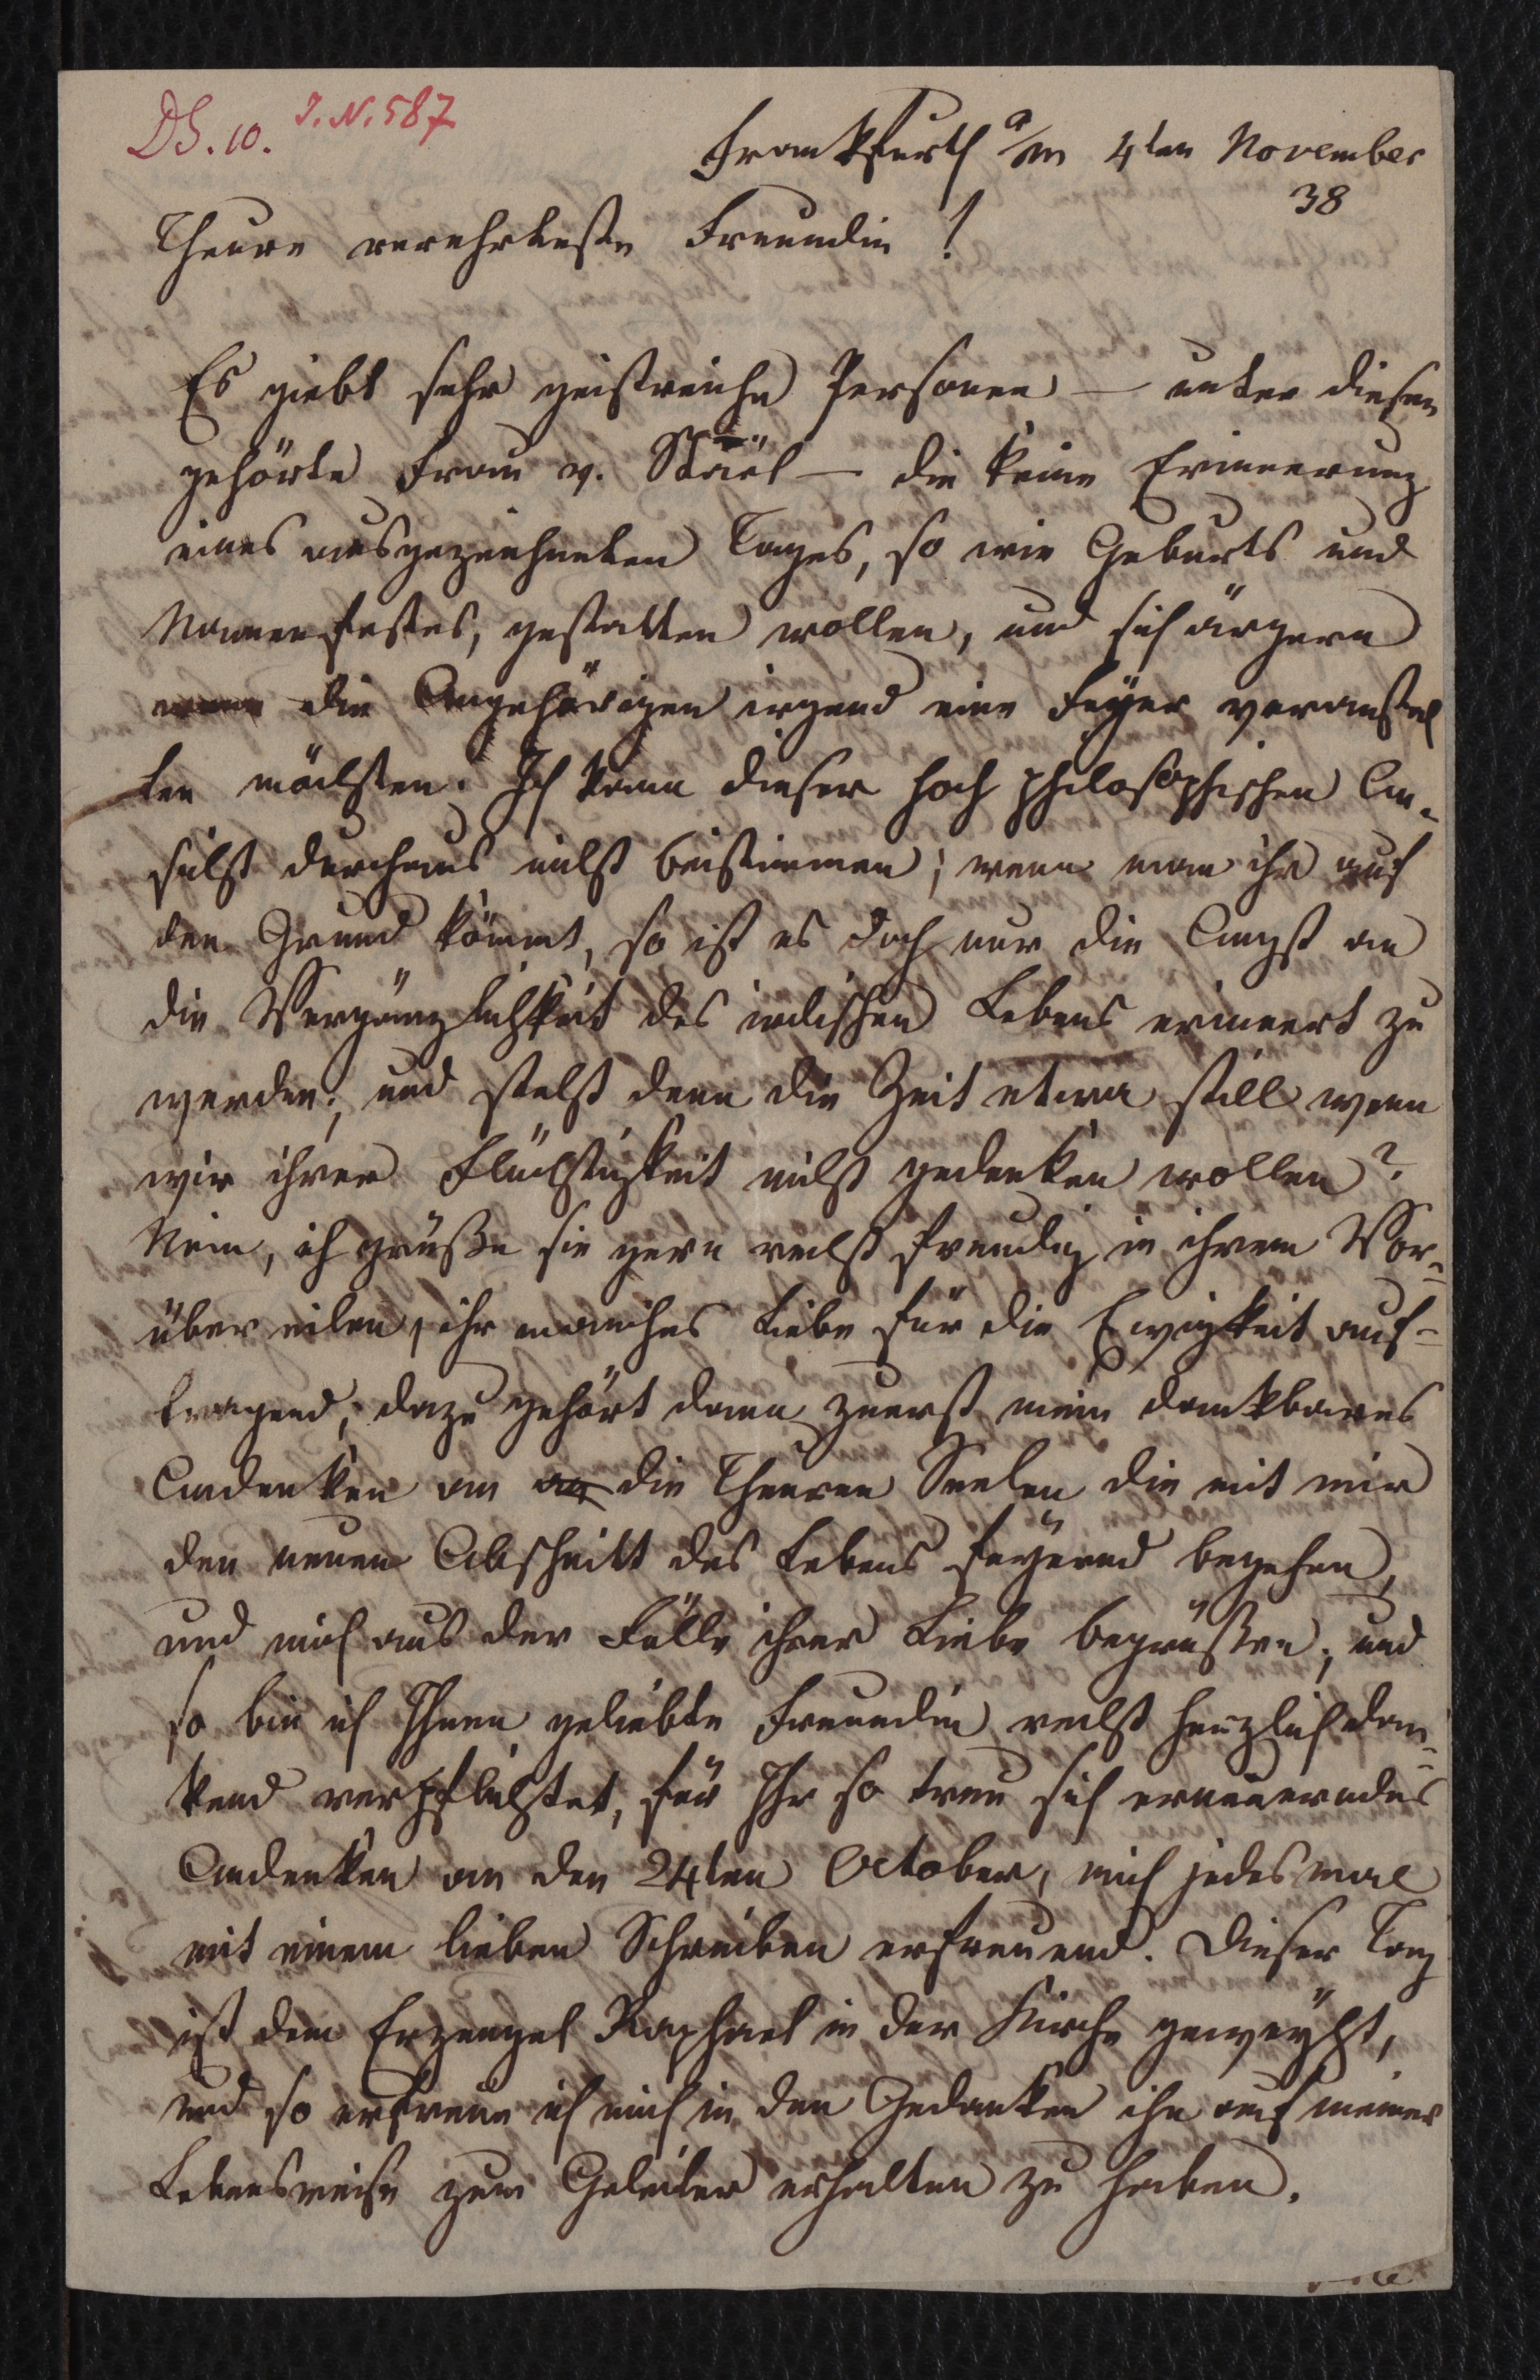 DS. 10. J. N. 587
Frankfurth a/m 4ten November
38
Theure verehrteste Freundin!
Es giebt sehr geistreiche Personen — unter diesen
gehörte Frau v. Stäel — die keine Erinnerung
eines ausgezeichneten Tages, so wie Geburts und
Namensfestes, gestatten wollen, und sich ärgern
wenn die Angehörigen irgend eine Feÿer veranstal
ten möchten. Ich kann dieser hoch philosophischen An-
sicht durchaus nicht beistimmen; wenn man ihr auf
den Grund kömmt, so ist es doch nur die Angst an
die Vergänglichkeit des irdischen Lebens erinnert zu
werden; und steht denn die Zeit etwa still wenn
wir ihrer Flüchtigkeit nicht gedenken wollen?
Nein, ich grüße sie gern recht freudig in ihrem Vor-
über eilen, ihr manches Liebe für die Ewigkeit auf-
tragend; dazu gehört dann zuerst mein dankbares
Andenken an an die Theuren Seelen die mit mir
den neuen Abschnitt des Lebens feÿernd begehen,
und mich aus der Fülle ihrer Liebe begrüßen; und
so bin ich Ihnen geliebte Freundin recht herzlich dan-
kend verpflichtet, für Ihr so treu sich erneuerndes
Andenken an den 24ten October, mich jedesmal
mit einem lieben Schreiben erfreuend. Dieser Tag
ist dem Erzengel Raphael in der Kirche geweÿht,
und so erfreue ich mich in den Gedanken ihn auf meiner
Lebensreise zum Geleiter erhalten zu haben.